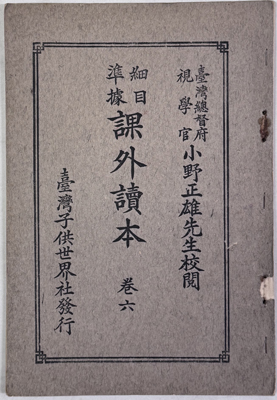 臺灣總督府
視學官
小野正雄先生校閱
細目
準據
課外讀本 卷六
臺灣子供世界社發行